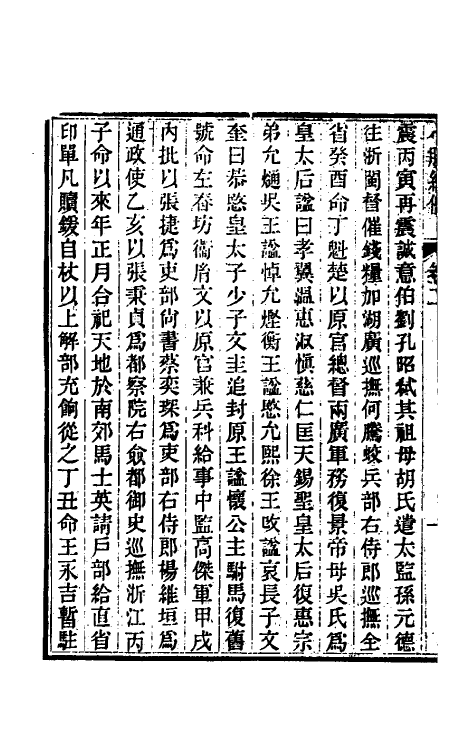 震丙寅再震誠意伯劉孔昭弒其祖母胡氏遣太監孫元德
往浙閩督催錢糧加湖廣巡撫何騰蛟兵部右侍郎巡撫全
省癸酉命丁魁楚以原官總督兩廣軍務復景帝母吳氏爲
皇太后諡曰孝翼溫惠淑愼慈仁匡天錫聖皇太后復惠宗
弟允熥吳王諡悼允熞衡王諡愍允熙徐王改諡哀長子文
奎曰恭愍皇太子少子文圭追封原王諡懷公主駙馬復舊
號命左春坊衞胤文以原官兼兵科給事中監高傑軍甲戌
內批以張捷爲吏部尙書蔡奕琛爲吏部右侍郎楊維垣爲
通政使乙亥以張秉貞爲都察院右僉都御史巡撫浙江丙
子命以來年正月合祀天地於南郊馬士英請戶部給直省
印單凡贖鍰自杖以上解部充餉從之丁丑命王永吉暫駐